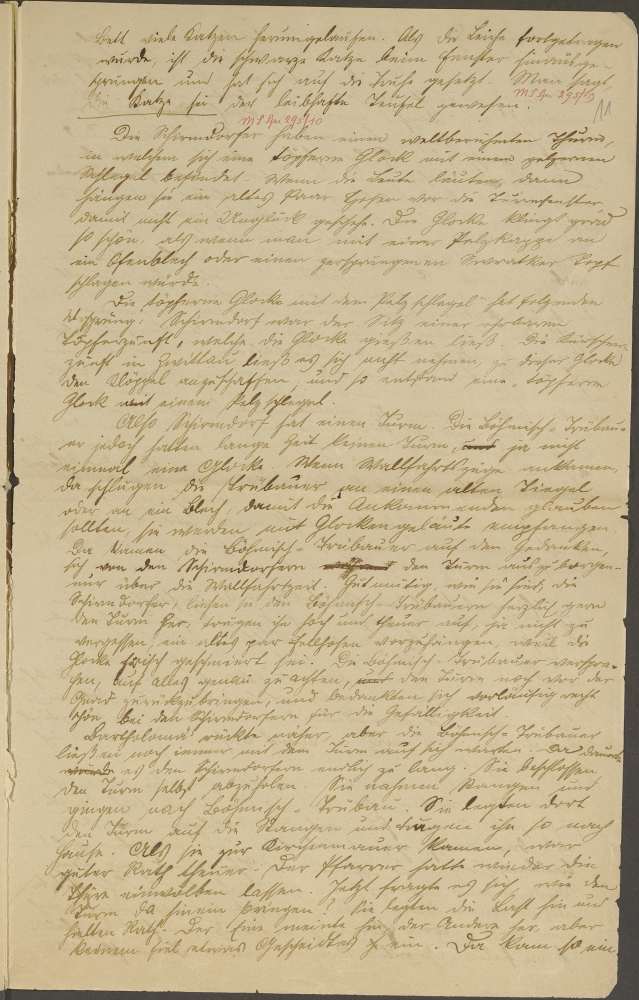 Bett viele Katzen herumgelaufen. Als die Leiche fortgetragen
wurde, ist die schwarze Katze beim Fenster hinausge-
sprungen und hat sich auf die Truhe gesetzt. Man sagt,
die Katze sei der leibhafte Teufel gewesen.
11
Die Schirmdorfer haben einen weltberühmten Thurm,
in welchem sich eine töpferne Glock mit einem pelzernen
Schlegel befindet. Wenn die Leute läuten, dann
hängen sie ein altes Paar Hosen vor die Turmfenster,
damit nicht ein Unglück geschehe. Die Glocke klingt grad
so schön, als wenn man mit einer Pelzkappe an
ein Ofenblech oder einen zersprungenen Topf
schlagen würde.
Die töpferne Glocke mit dem Pelzschlegel hat folgenden
Ursprung: Schirmdorf war der Sitz einer ehrbaren
Töpferzunft, welche die Glocke gießen ließ. Die Kürschner-
zunft in Zwittau ließ es sich nicht nehmen, zu dieser Glocke
den Klöppel anzuschaffen, und so entstand eine töpferne
Glock mit einem Pelzschlegel.
Also Schirmdorf hat einen Turm. Die Böhmisch-Trübau-
er jedoch hatten lange Zeit keinen Turm, ja nicht
einmal eine Glocke. Wenn Wallfahrtszüge ankamen,
da schlugen die Trübauer an einen alten Tiegel
oder an ein Blech, damit die Ankommenden glauben
sollten, sie werden mit Glockengeläute empfangen.
Da kamen die Böhmisch-Trübauer auf den Gedanken,
sich von den Schirmdorfern den Turm auszuborgen
nur über die Wallfahrtszeit. Gutmütig, wie sie sind, die
Schirmdorfer, liehen sie den Böhmisch-Trübauern herzlich gern
den Turm her, trugen ihnen hoch und theuer auf, sie nicht zu
vergessen, ein altes par Hosen vorzuhängen, weil die
Glocke frisch geschmiert sei. Die Böhmisch-Trübauer verspra-
chen, auf alles genau zu achten, den Turm noch vor der
zurückzubringen, und bedankten sich vorläufig recht
schön bei den Schirmdorfern für die Gefälligkeit.
Bartholomä rückte näher, aber die Böhmisch-Trübauer
ließen noch immer mit dem Turm auf sich warten. Da dauerte
es den Schirmdorfern endlich zu lang. Sie beschlossen,
den Turm selbst abzuholen. Sie nahmen Stangen und
gingen nach Böhmisch-Trübau. Sie legten dort
den Turm auf die Stangen und trugen ihn so nach
Hause. Als sie zur Kirchenmauer kamen, war
guter Rath theuer. Der Pfarrer hatte wieder die
Thüre einwölben lassen. Jetzt fragte es sich, wie den
Turm da hinein bringen? Sie legten die Last hin und
hielten Rath. Der Eine meinte hin, der Andere her, aber
keinem fiel etwas Gescheidtes ein. Da kam so ein